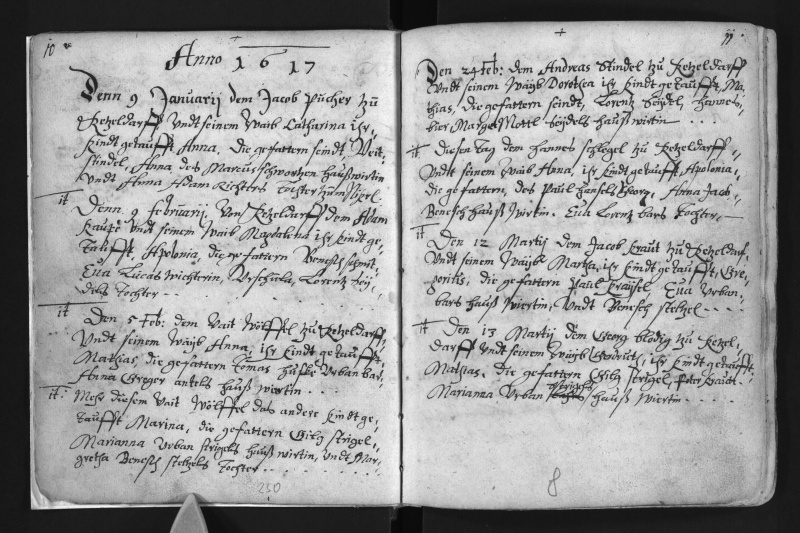 10
Anno 1617
Denn 9 Januarij dem Jacob Pücher zu
Ketzeldarff Vndt seinem Waib Catharina ihr
Kindt getaufft Anna, Die gefattern seindt, Veit
stindel, Anna, des Marcus schwortzen hauß wirtin
Vndt Anna Adam Richters Tochter zum
it Denn 9 februarij, Von Ketzeldarff dem Adam
Krautz Vndt seinem Waib Magdalena ihr Kindt ge-
taufft, Apolonia, die gefattern Benesch
Eua Lucas wichterin, Vrschula, Lorentz bey-
dels Tochter
it Den 5 Feb: dem Vait Wölffel zu Ketzeldarff
Vndt seinem Waijb Anna, ihr Kindt getaufft
Mathias die gefattern Tomas Vrban bar,
Anna Greger antels hauß wiertin
it: Mehr diesem Vait Wölffel das andere Kindt ge-
taufft Marina, die gefattern Gilg strigel
Marianna Vrban strigels hauß wirtin, Vndt Mar-
gretha Benesch steltzels Tochter
250
11
Den 24 Feb: dem Andreas stindel zu Ketzeldarff
Vndt seinem Waijb Dorothea ihr Kindt getaufft, Ma-
thias, die gefattern seindt, Lorentz beydel,
Marge Mottl beydels hauß wirtin
it Diesen tag dem Hannes schlegel zu Ketzeldarff
Vndt seinem Waib Anna, ihr Kindt getaufft, Apolonia,
die gefattern, des Paul hansels Anna Jacob
Benesch hauß wirtin. Eua Lorentz bars Tochter
it Den 12 Martij dem Jacob Kraut zu Ketzeldarf
Vndt seinem Waijb Martha, ihr Kindt getaufft, Gre-
gorius, die gefattern Paul Kraijsel Eua Vrban
bars hauß wiertin, Vndt Benesch steltzel
it Den 13 Martij dem Georg bledig zu Ketzel-
darff Vndt seinem Waijb ihr Kindt getaufft
Mathias, die gefattern Gilg strigel, Peter Kraut
Marianna Vrban strigels hauß wiertin
8